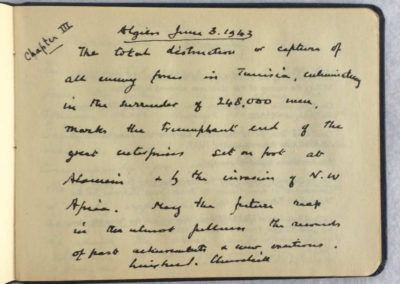 Chapter III
Algiers June 3. 1943
The total destruction or capture of
all enemy forces in Tunisia, culminating
in the surrender of 248,000 men,
marks the triumphant end of the
great enterprises set on foot at
Alamein & by the invasion of N.W
Africa. May the future reap
in the utmost fullness the rewards
of past achievements & new exertions.
Winston S. Churchill